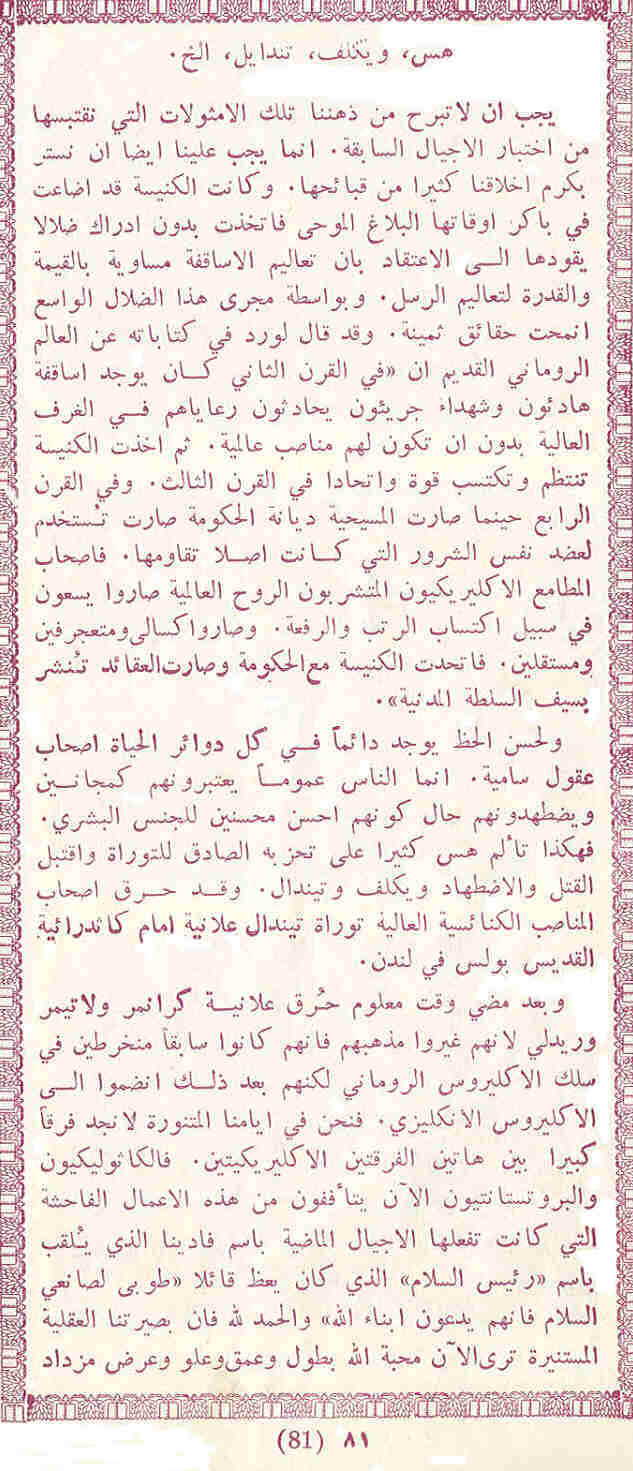 هس، ويكلف، تندايل، الخ.
يجب ان لاتبرح من ذهننا تلك الامثولات التي نقتبسها
من اختبار الاجيال السابقة. انما يجب علينا ايضا ان نستر
بكرم اخلاقنا كثيرا من قبائحها. وكانت الكنيسة قد اضاعت
في باكر اوقاتها البلاغ الموحى فاتخذت بدون ادراك ضلالا
يقودها الــى الاعتقاد بان تعاليم الاساقفة مساوية بالقيمة
والقدرة لتعاليم الرسل. وبواسطة مجرى هذا الضلال الواسع
انمحت حقائق ثمينة. وقد قال لورد في كتاباته عن العالم
الروماني القديم ان «في القرن الثاني كــان يوجد اساقفة
هادئون وشهداء جريئون يحادثون رعاياهم فــي الغرف
العالية بدون ان تكون لهم مناصب عالمية. ثم اخذت الكنيسة
تنتظم وتكتسب قوة واتحادا في القرن الثالث. وفي القرن
الرابع حينما صارت المسيحية ديانة الحكومة صارت تُستخدم
لعضد نفس الشرور التي كــانت اصــلا تقاومها. فاصحاب
المطامع الاكليريكيون المتشربون الروح العالمية صاروا يسعون
في سبيل اكتساب الرتب والرفعة. وصارواكسالى ومتعجرفين
ومستقلين. فاتحدت الكنيسة مع الحكومة وصارت العقائد تُنشر
بسيف السلطة المدنية».
ولحسن الحظ يوجد دائماً فــي كل دوائر الحياة اصحاب
عقول سامية. انما الناس عمومــاً يعتبرونهم كمجانــين
ويضطهدونهم حال كونهم احسن محسنين للجنس البشري.
فهكذا تألم هس كثيرا على تحزبه الصادق للتوراة واقتبل
القتل والاضطهاد ويكلف وتيندال. وقــد حــرق اصحاب
المناصب الكنائسية العالية توراة تيندال علانية امام كاثدرائية
القديس بولس في لندن.
وبعد مضي وقت معلوم حُرق علانيــة كرانمر ولاتيمر
وريدلي لانهم غيروا مذهبهم فانهم كانوا سابقاً منخرطين في
سلك الاكليروس الروماني لكنهم بعد ذلــك انضموا الــى
الاكليروس الانكليزي. فنحن في ايامنا المتنورة لانجد فرقاً
كبيرا بين هاتين الفرقتين الاكليريكيتين. فالكاثوليكيون
والبروتستانتيون الآن يتأففون من هذه الاعمال الفاحشة
التي كانت تفعلها الاجيال الماضية باسم فادينا الذي يُلقب
باسم «رئيس السلام» الذي كان يعظ قائلا «طوبى لصانعي
السلام فانهم يدعون ابناء الله» والحمد لله فان بصيرتنا العقلية
المستنيرة ترى الآن محبة الله بطول وعمق وعلو وعرض مزداد
٨١ (81)